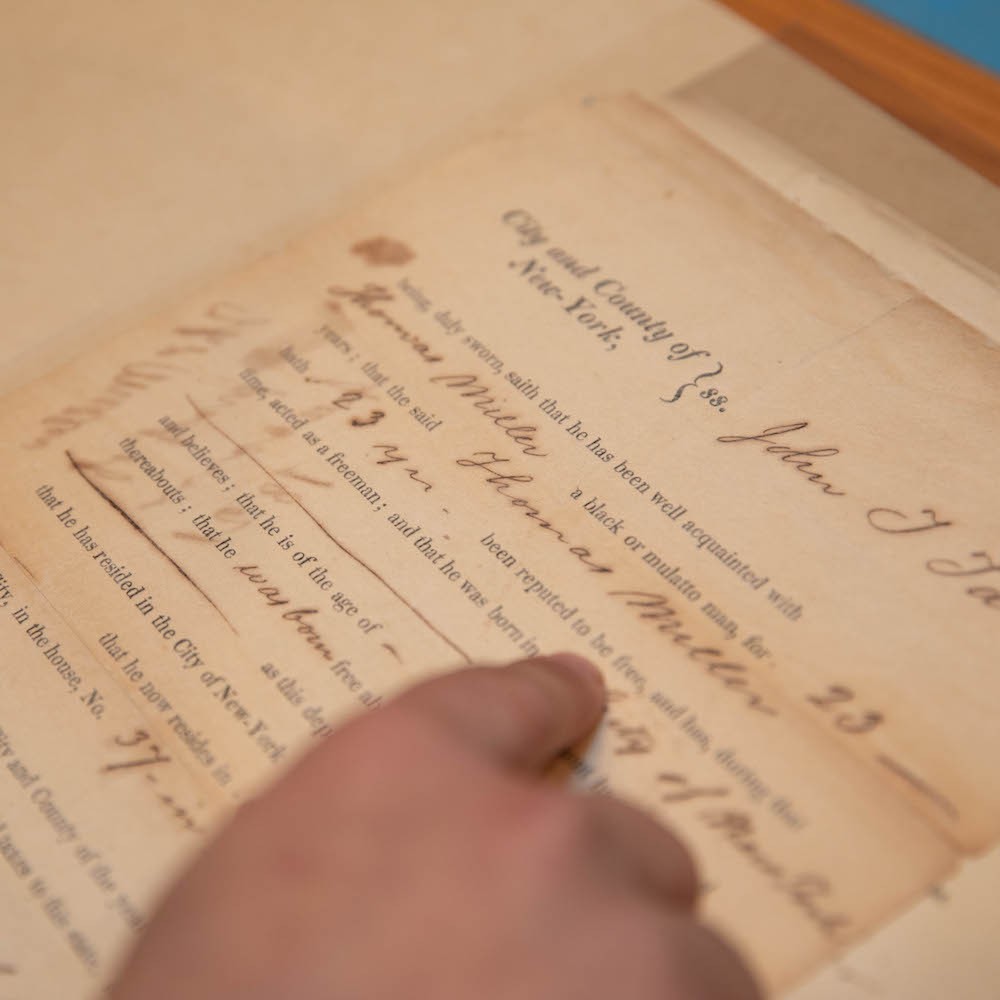 City and County of } ss.
New-York,
John T
being, duly sworn, saith that he has been well acquainted with
Thomas Miller a black or mulatto man, for 23 —
years; that the said Thomas Miller
hath 23 yrs been reputed to be free, and has, during that
time, acted as a freeman; and that he was born in City of
and believes; that he is of the age of –
thereabouts; that he was born free
as this
that he has resided in the City of New-York
that he now resides in
City, in the house, No. 37- in
and County of the year
taxes to this state